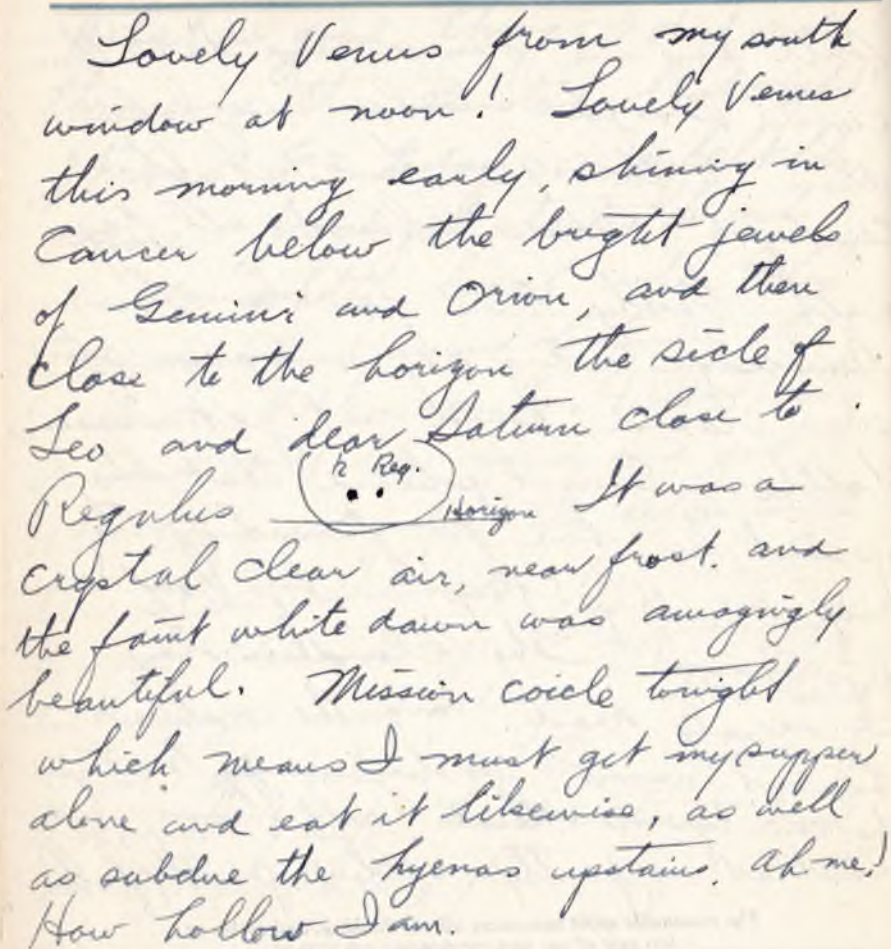 Lovely Venus from my south
window at noon! Lovely Venus
this morning early, shining in
Cancer below the bright jewels
of Gemini and Orion, and then
close to the horizon the sicle of
Leo and dear Saturn close to
♄ Reg.
Regulus Horizon It was a
crystal clear air, near frost. and
the faint white dawn was amazingly
beautiful. Mission circle tonight
which means I must get my supper
alone and eat it likewise, as well
as subdue the hyenas upstairs. Ah-me!
How hollow I am.